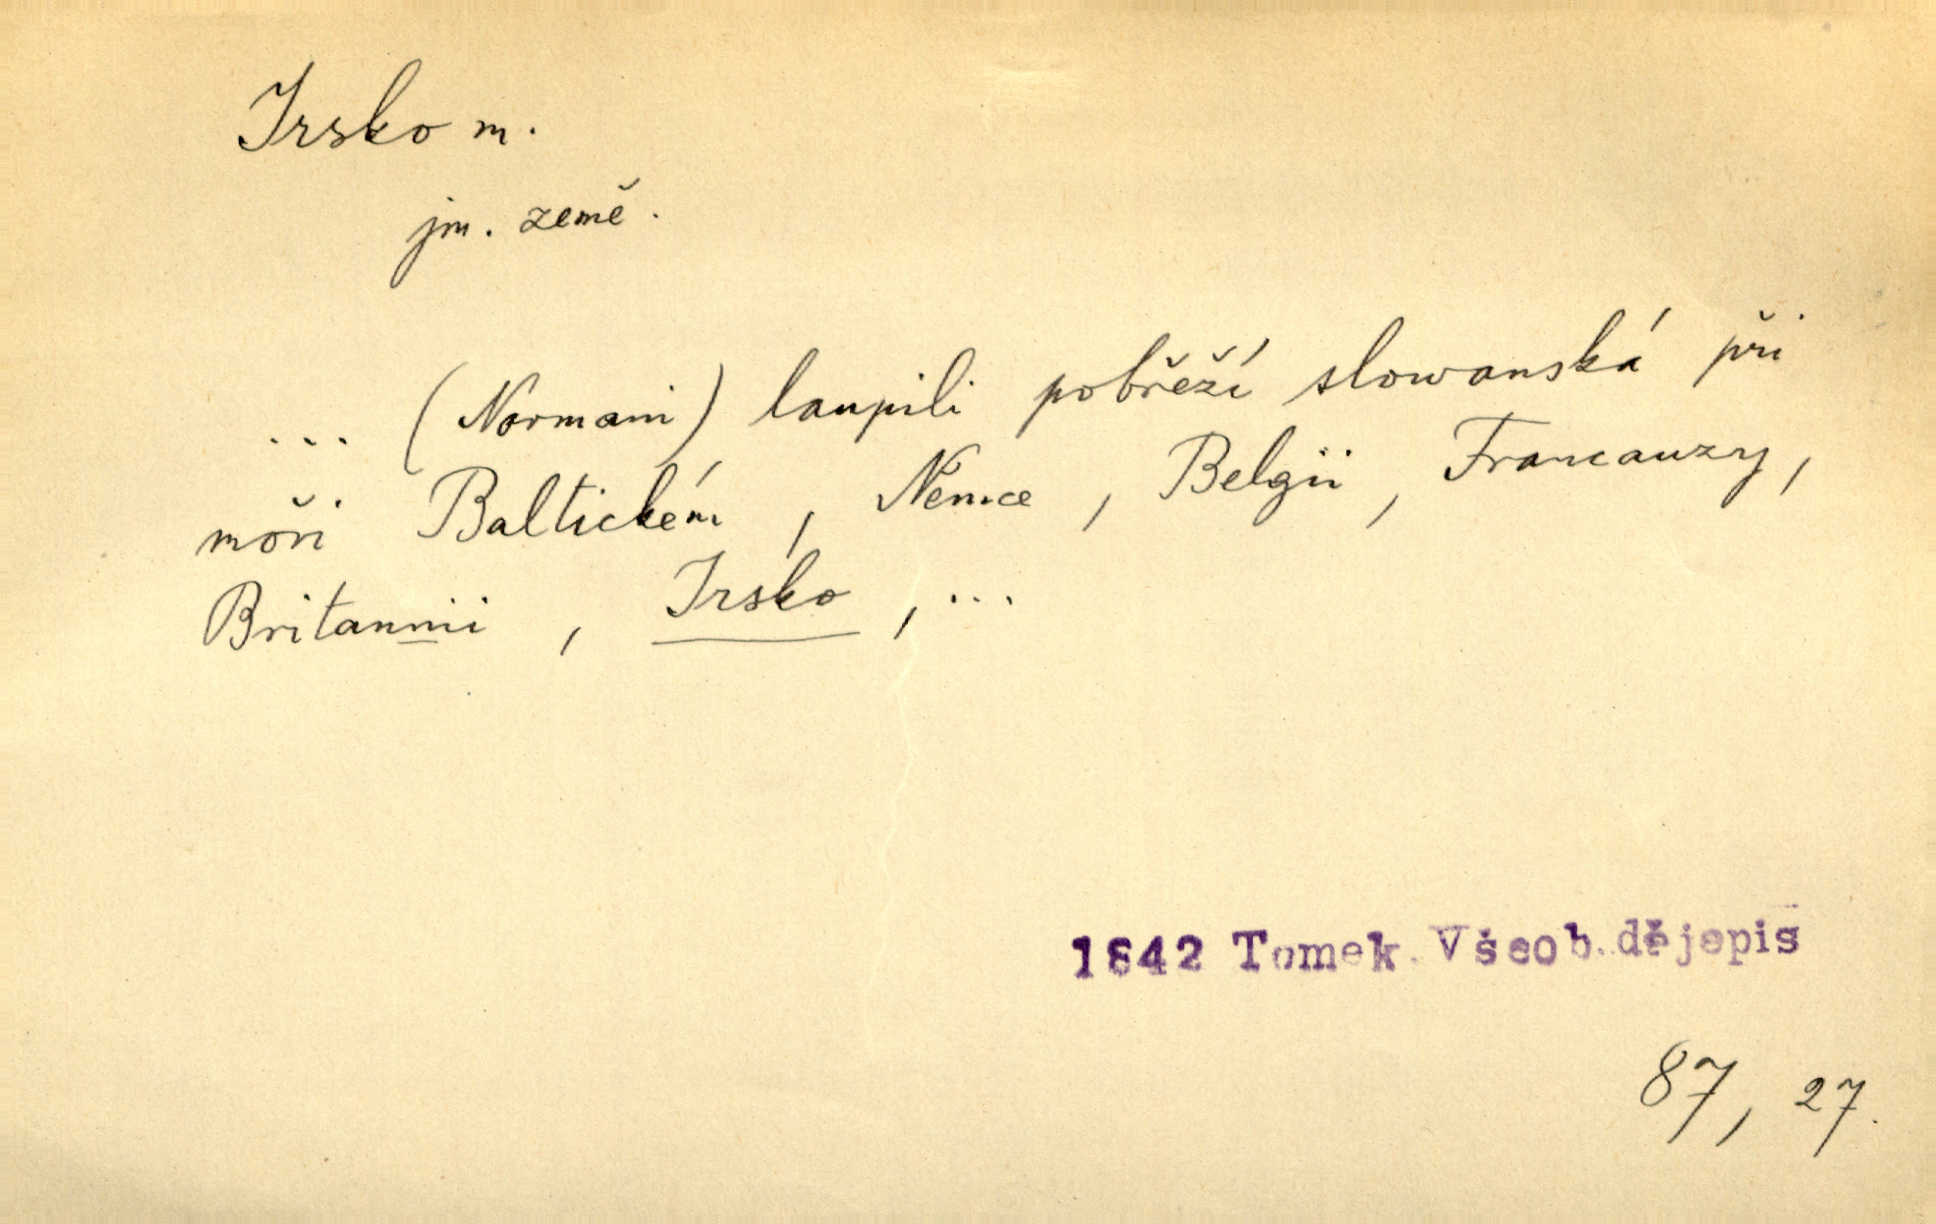 Irsko n.
jm. země.
... (Normani) laupili pobřeží slowanská při
moři Baltickém, Němce, Belgii, Francauzy,
Britannii, Irsko, ...
1842 Tomek. Všeob. dějepis
87, 27.